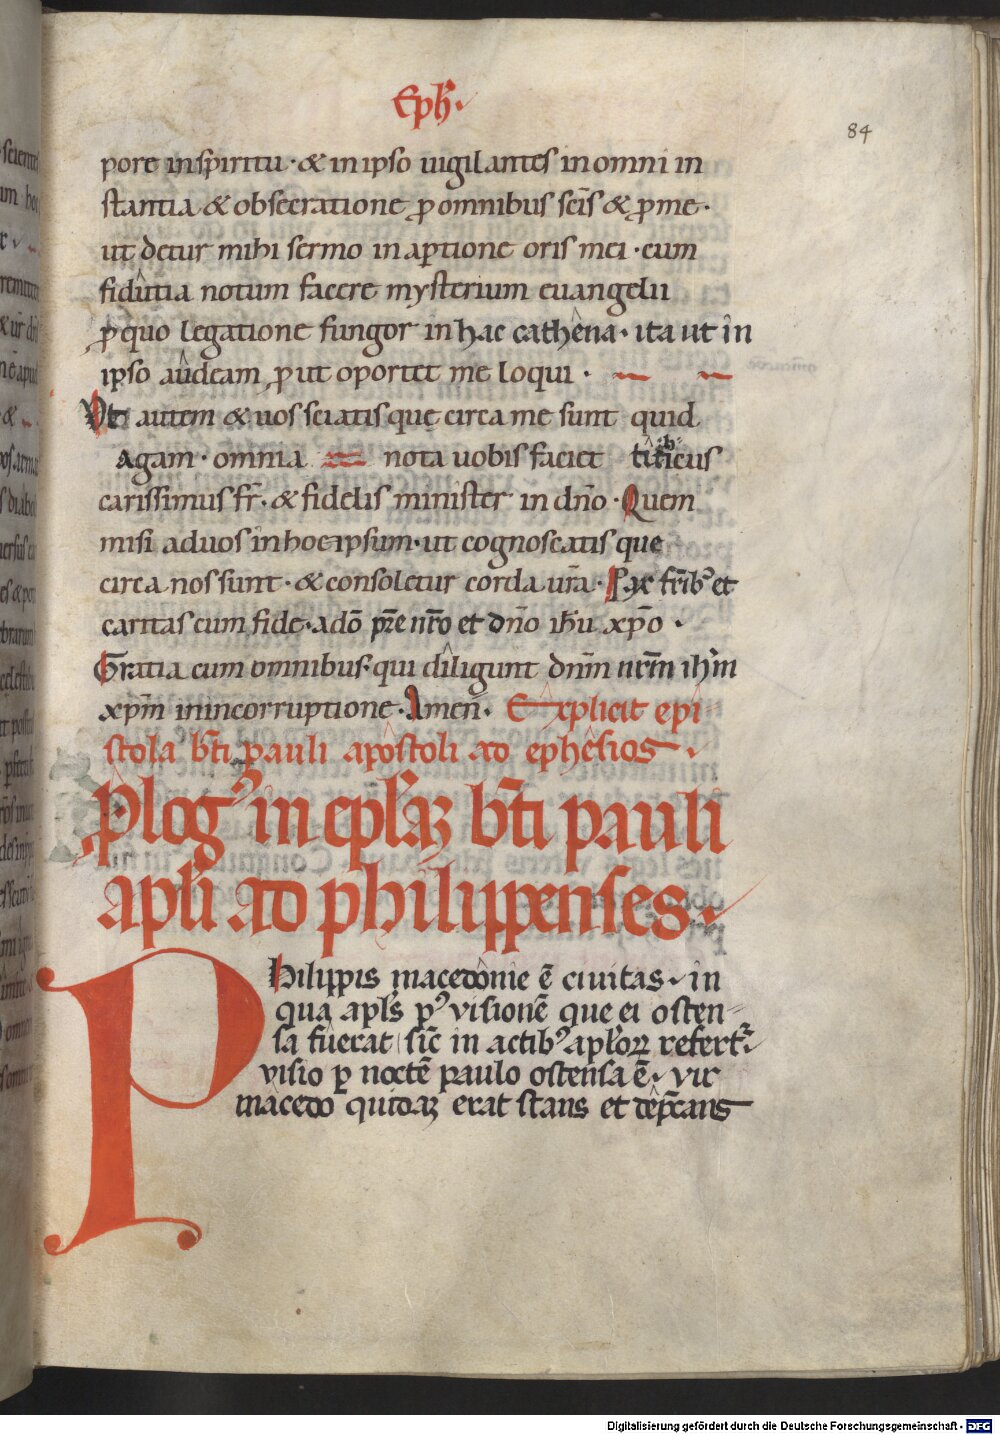 Eph̅.
84
pore in spiritu · & in ipso uigilantes in omni in
stantia & obsecratione ꝓ omnibus sc̅is & ꝓ me ·
ut detur mihi sermo in aꝑtione oris mei · cum
fidutia notum facere mysterium euangelii
ꝓ quo legatione fungor in hac cathena · ita ut in
ipso audeam, ꝓut oportet me loqui ·
Vt autem & uos sciatis quę circa me sunt quid
agam · omnia nota uobis faciet titicus
carissimus fr̅ · & fidelis minister in dn̅o · Quem
misi ad uos in hoc ipsum · ut cognoscatis que
circa nos sunt · & consoletur corda ur̅a · Pax fr̅ib⁹ et
caritas cum fide · a do̅ pr̅e nr̅o et dn̅o ih̅u xp̅o ·
Gratia cum omnibus · qui diligunt dn̅m nr̅m ih̅m
xp̅m in incorruptione · Amen · Explicit epi
stola bt̅i pauli apostoli ad ephesios ·
Plog⁹ in epl̅aꝫ bt̅i pauli
apl̅i ad philippenses ·
Philippis macedonie e̅ ciuitas · in
qua apl̅s p⁹ visione̅ que ei osten-
sa fuerat sic̅ in actib⁹ apl̅oꝝ refert᷑
visio ꝑ nocte̅ paulo ostensa e̅ · vir
macedo quidaꝫ erat stans et dep̅cans
Digitalisierung gefördert durch die Deutsche Forschungsgemeinschaft - DFG